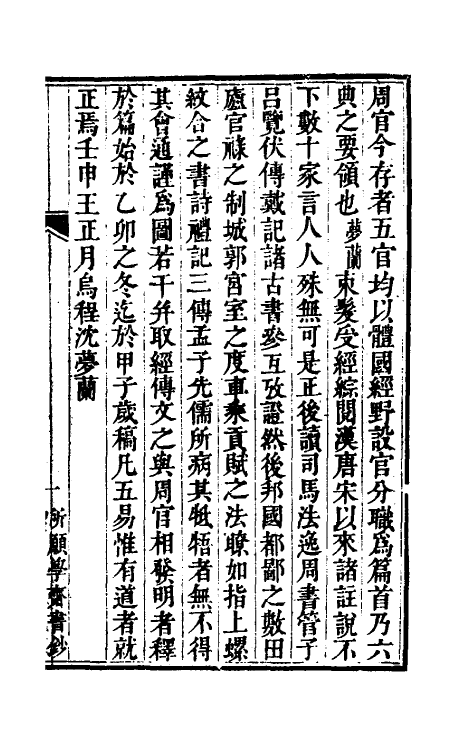 周官今存者五官均以體國經野設官分職爲篇首乃六
典之要領也夢蘭束髮受經綜閱漢唐宋以來諸註說不
下數十家言人人殊無可是正後讀司馬法逸周書管子
呂覽伏傳戴記諸古書參互攷證然後邦國都鄙之數田
廬官祿之制城郭宮室之度車乘貢賦之法瞭如指上螺
紋合之書詩禮記三傳孟子先儒所病其牴牾者無不得
其會通謹爲圖若干幷取經傳文之與周官相發明者釋
於篇始於乙卯之冬迄於甲子歲稿凡五易惟有道者就
正焉壬申王正月烏程沈夢蘭
一 所願學齋書鈔